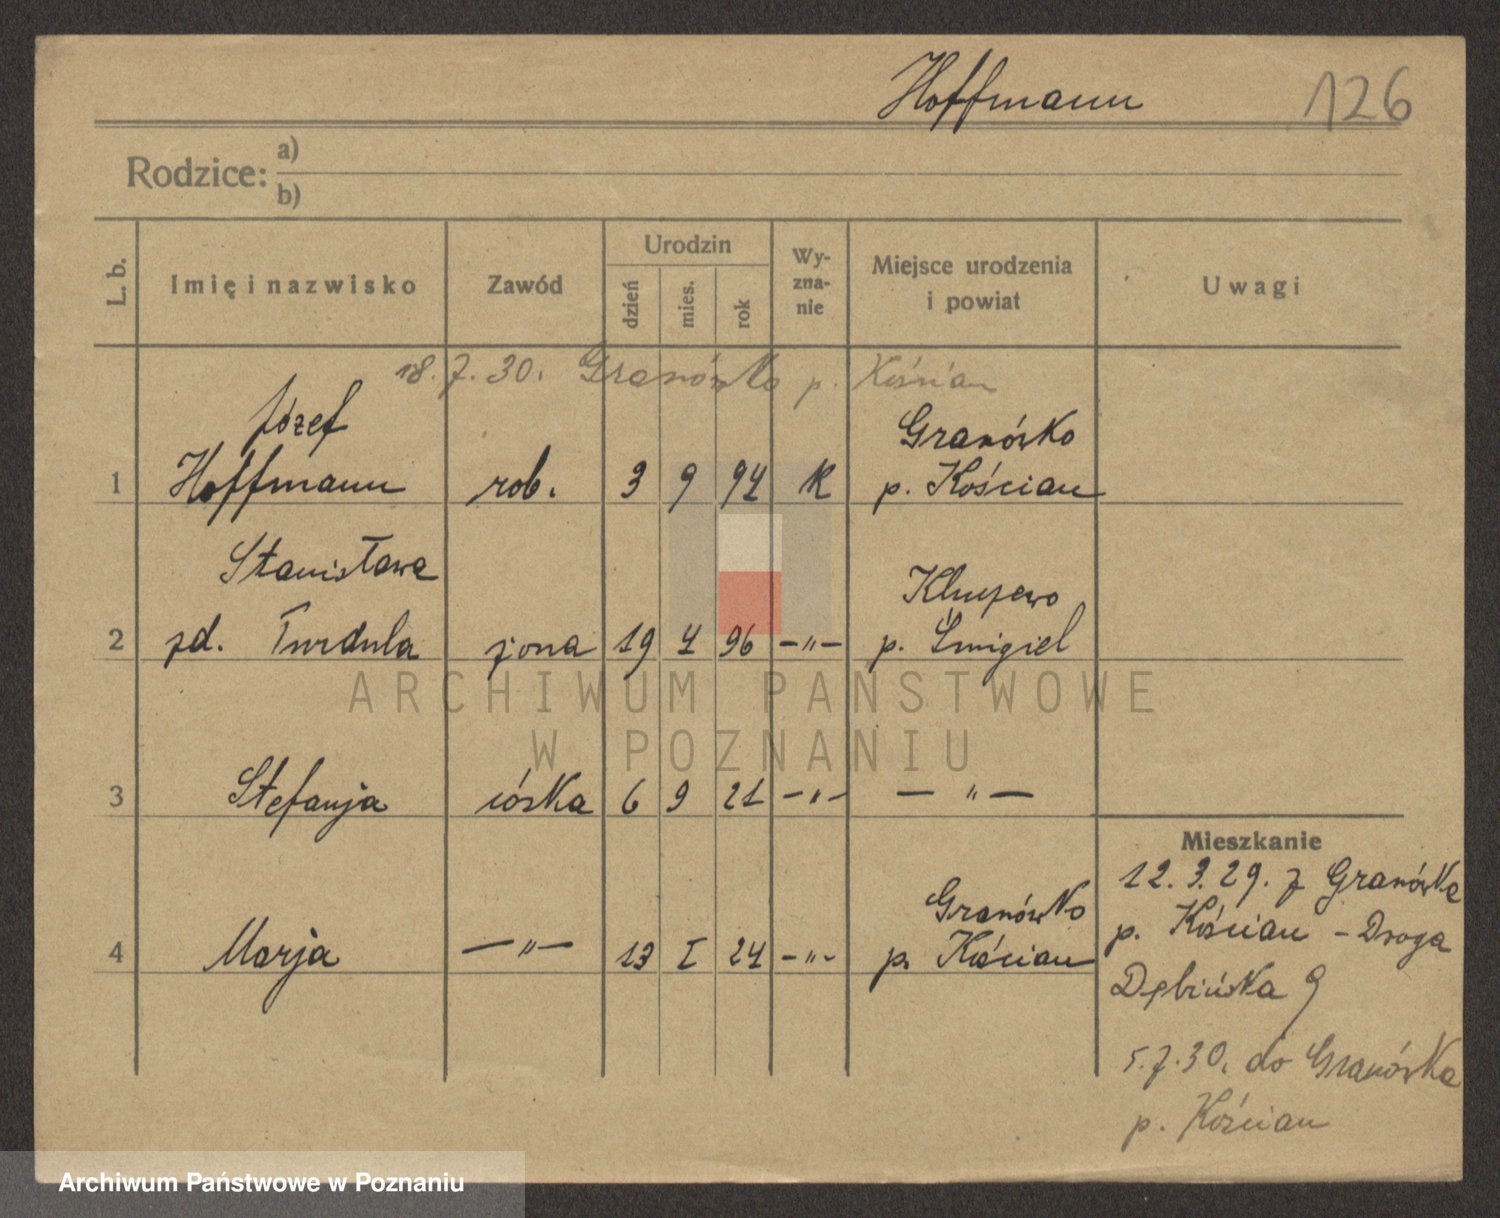 Hoffmann 126
Rodzice: a)
b)
L. b. Imię i nazwisko Zawód Urodzin dzień mies. rok Wy-zna-nie Miejsce urodzenia i powiat Uwagi
18.7.30. Granówko p. Kościan
Józef Granówko
1 Hoffmann rob. 3 9 94 K p. Kościan
Stanisława
2 zd. Turdula żona 19 4 96 -"- p. Śmigiel
ARCHIWUM PAŃSTWOWE
W POZNANIU
3 Stefanja córka 6 9 21 -"- -"-
Mieszkanie
12.3.29. z Granówka
Granówko
p. Kościan - Droga
4 Marja -"- 13 I 24 -"- p. Kościan
Dębińska 9
5.7.30. do Granówka
p. Kościan
Archiwum Państwowe w Poznaniu